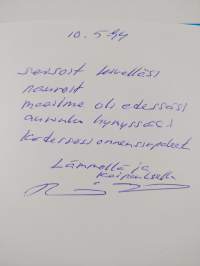 10.5.94
seisoit kivelläsi
nauroit
maailma oli edessäsi
aurinko hymyssäsi
Kädessäsi onnensirpaleet
Lämmöllä ja
Kaipauksella